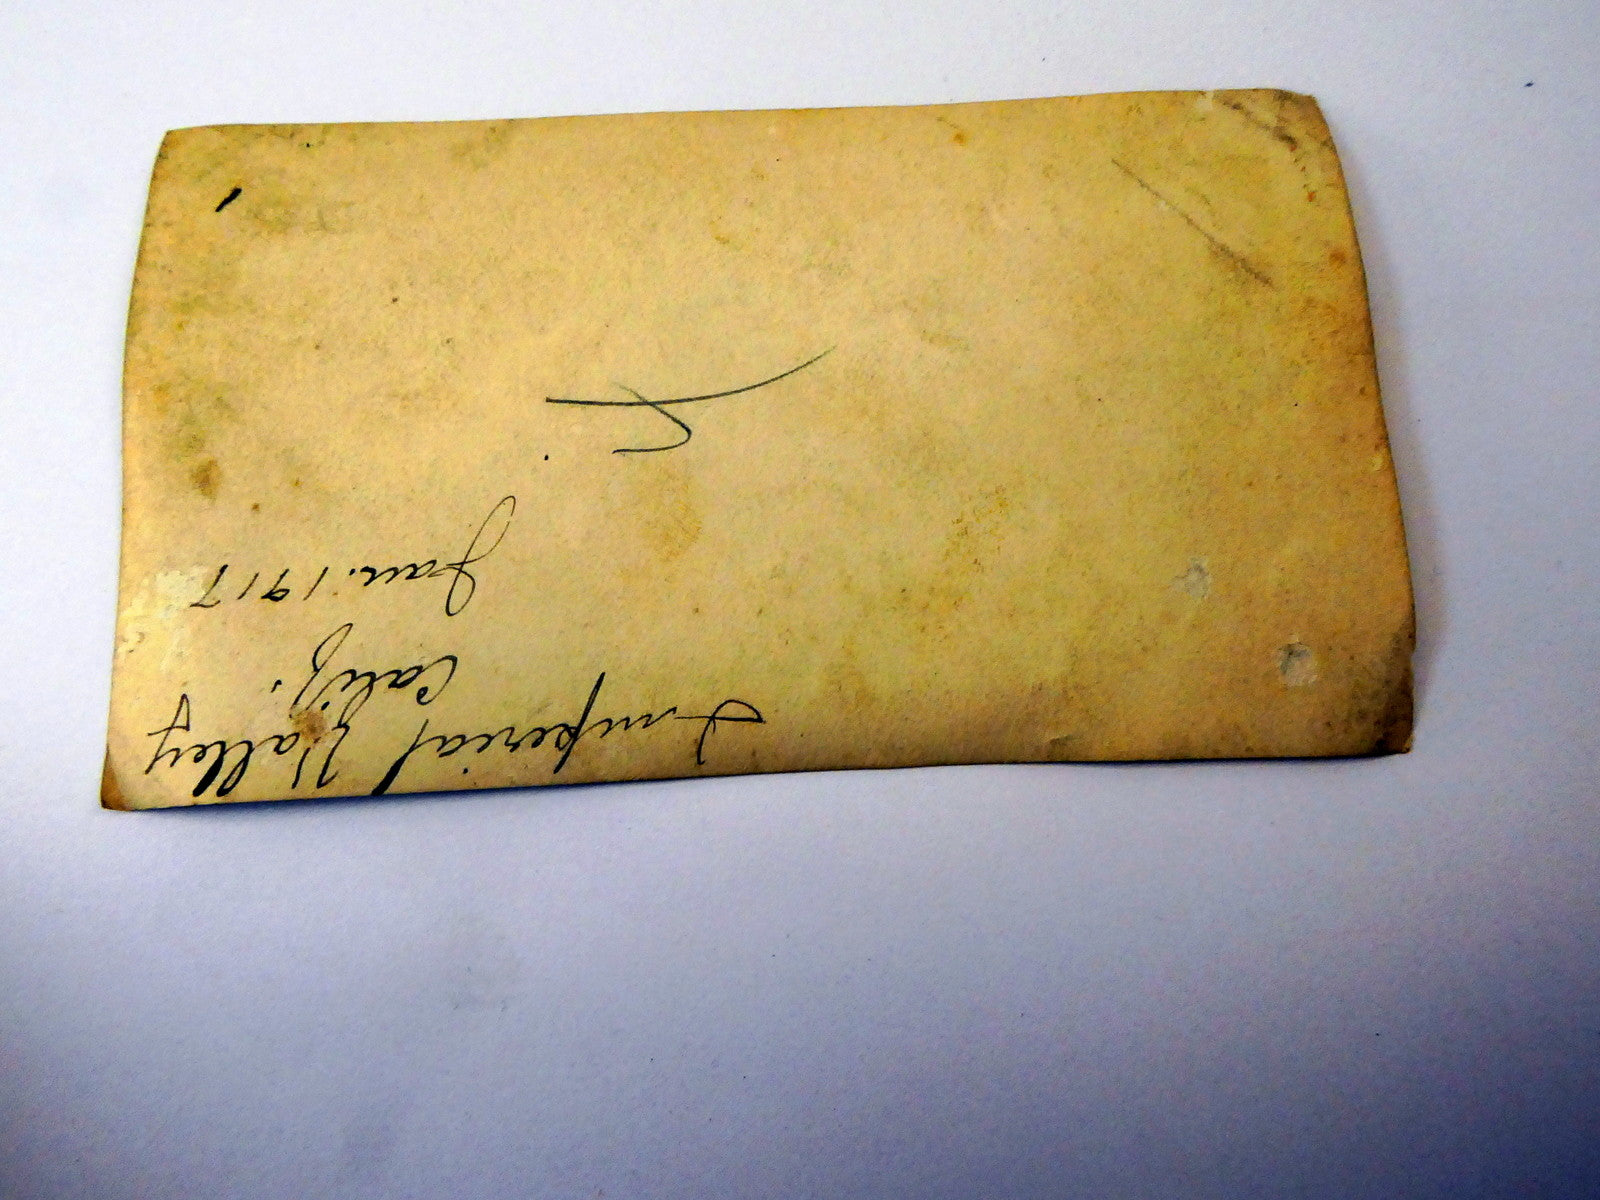 Imperial Valley
Calif.
Jan. 1917